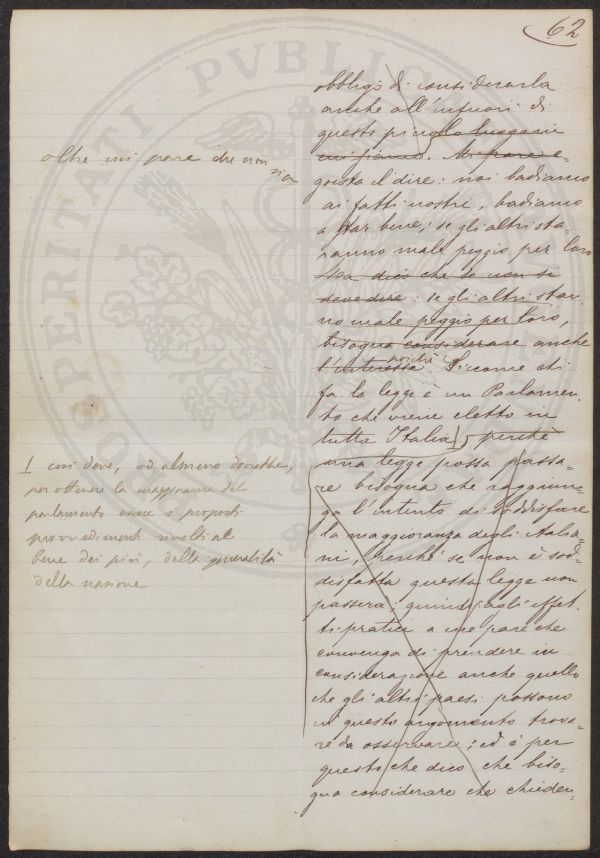 62
obbligo di considerarla
anche all'infuori di
questo piccolo
cui siamo. Mi pare e-
goista il dire: noi badiamo
ai fatti nostri, badiamo
a star bene; se gli altri sta-
ranno male peggio per loro
Ma dico che se non si
deve dire: se gli altri stan-
no male peggio per loro,
bisogna considerare anche
l'interesse poichè Siccome chi
fa la legge è un Parlamen-
to che viene eletto in
tutta Italia perchè
una legge possa passa-
re bisogna che raggiun-
ga l'intento di soddisfare
la maggioranza degli Italia-
ni, perchè se non è sod-
disfatta questa legge non
passerà; quindi agli effet-
ti pratici a me pare che
convenga di prendere in
considerazione anche quello
che gli altri paesi possono
in questo argomento trova-
re da osservare; ed è per
questo che dico che biso-
gna considerare che chieden-
oltre mi pare che non
sia
così deve, od almeno dovrebbe,
per ottenere la maggioranza del
parlamento essere si proposti
provvedimenti rivolti al
bene dei più, della generalità
della nazione
PROSPERITATI PVBLICAE